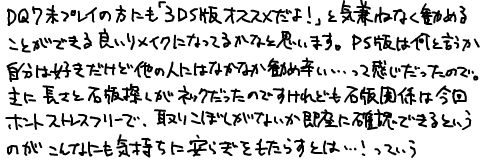 DQ7未プレイの方にも「3DS版オススメだよ！」と気兼ねなく勧める
ことができる良いリメイクになってるかなと思います。PS版は何と言うか
自分は好きだけど他の人にはなかなか勧め辛い…って感じだったので。
主に長さと石版探しがネックだったのですけれども石版関係は今回
ホントストレスフリーで、取りこぼしがないか即座に確認できるという
のがこんなにも気持ちに安らぎをもたらすとは…！っていう